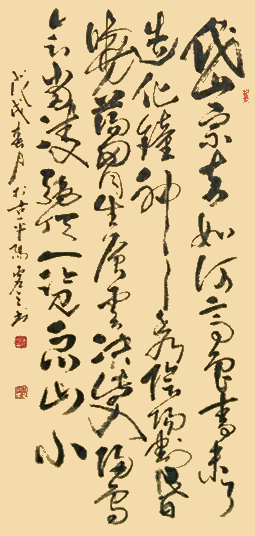 岱宗夫如何齊魯青未了
造化鐘神秀陰陽割昏
曉蕩胸生層雲決眥入歸鳥
會當凌絕頂一覽眾山小
戊戌春月於古平陽書